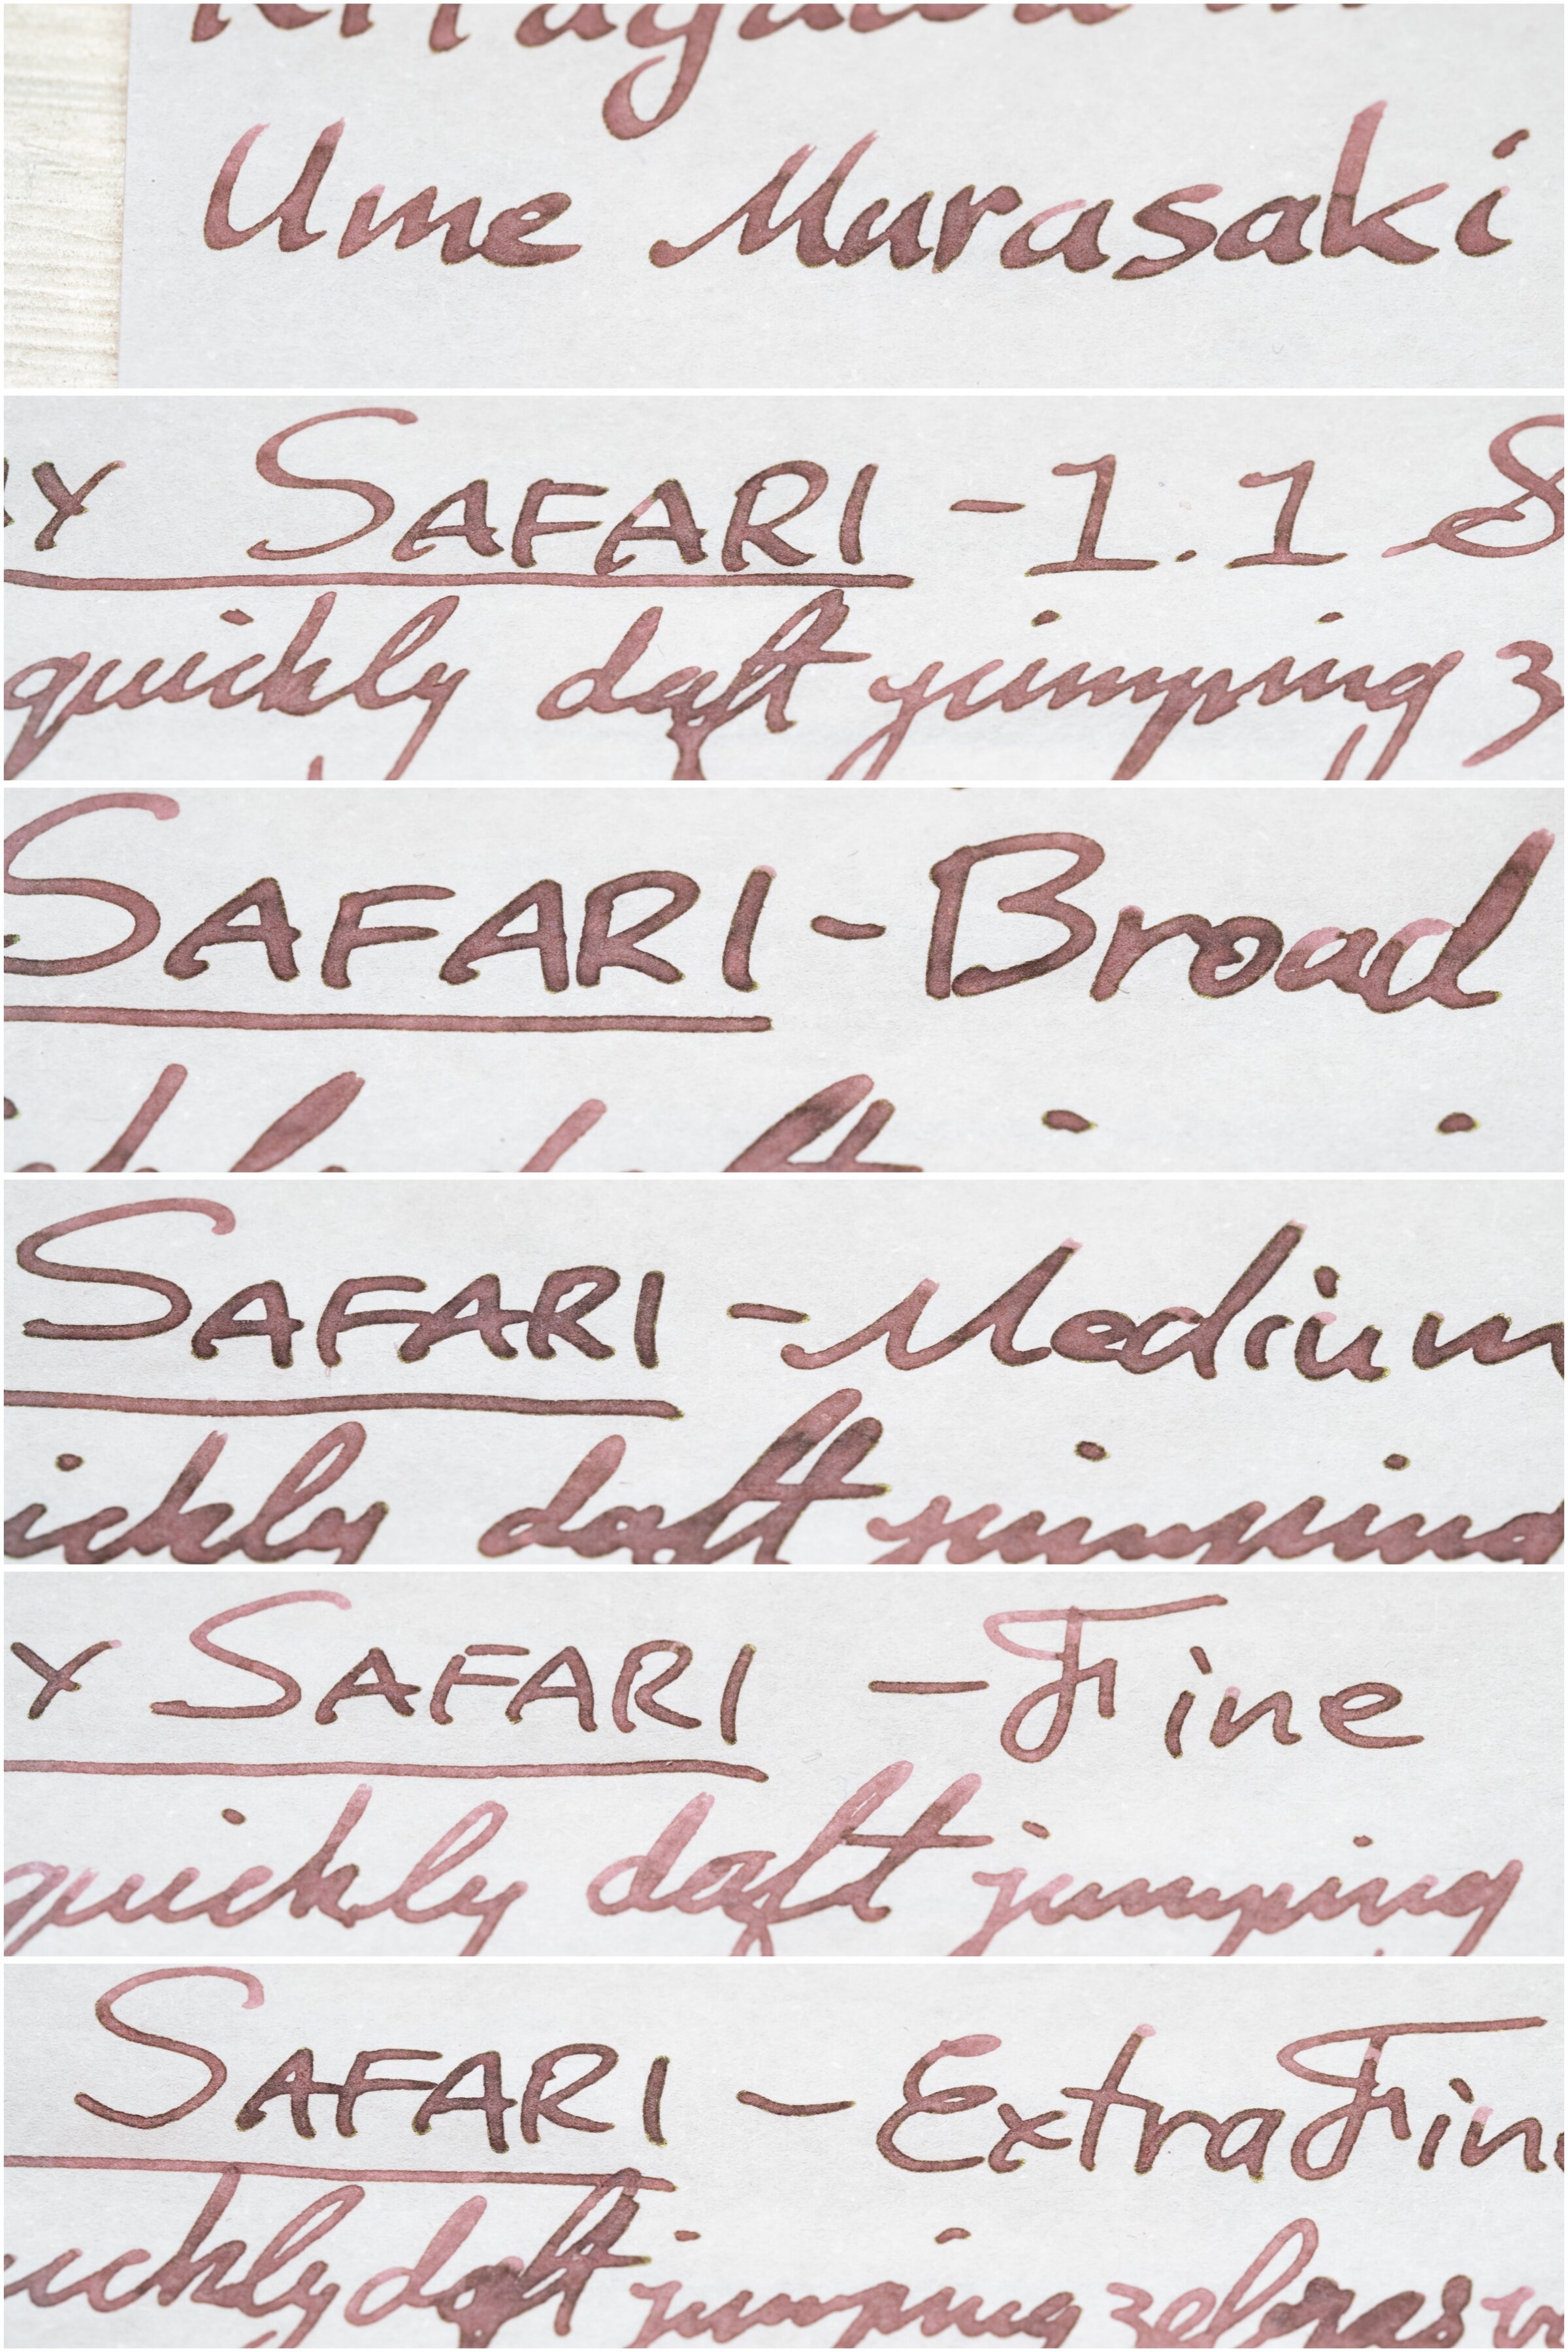 Ume Murasaki
SAFARI - 1.1 S
quickly daft jumping z
SAFARI - Broad
SAFARI - Medium
ickly daft jumping
SAFARI - Fine
quickly daft jumping
SAFARI - Extra Fine
uickly daft jumping zebras